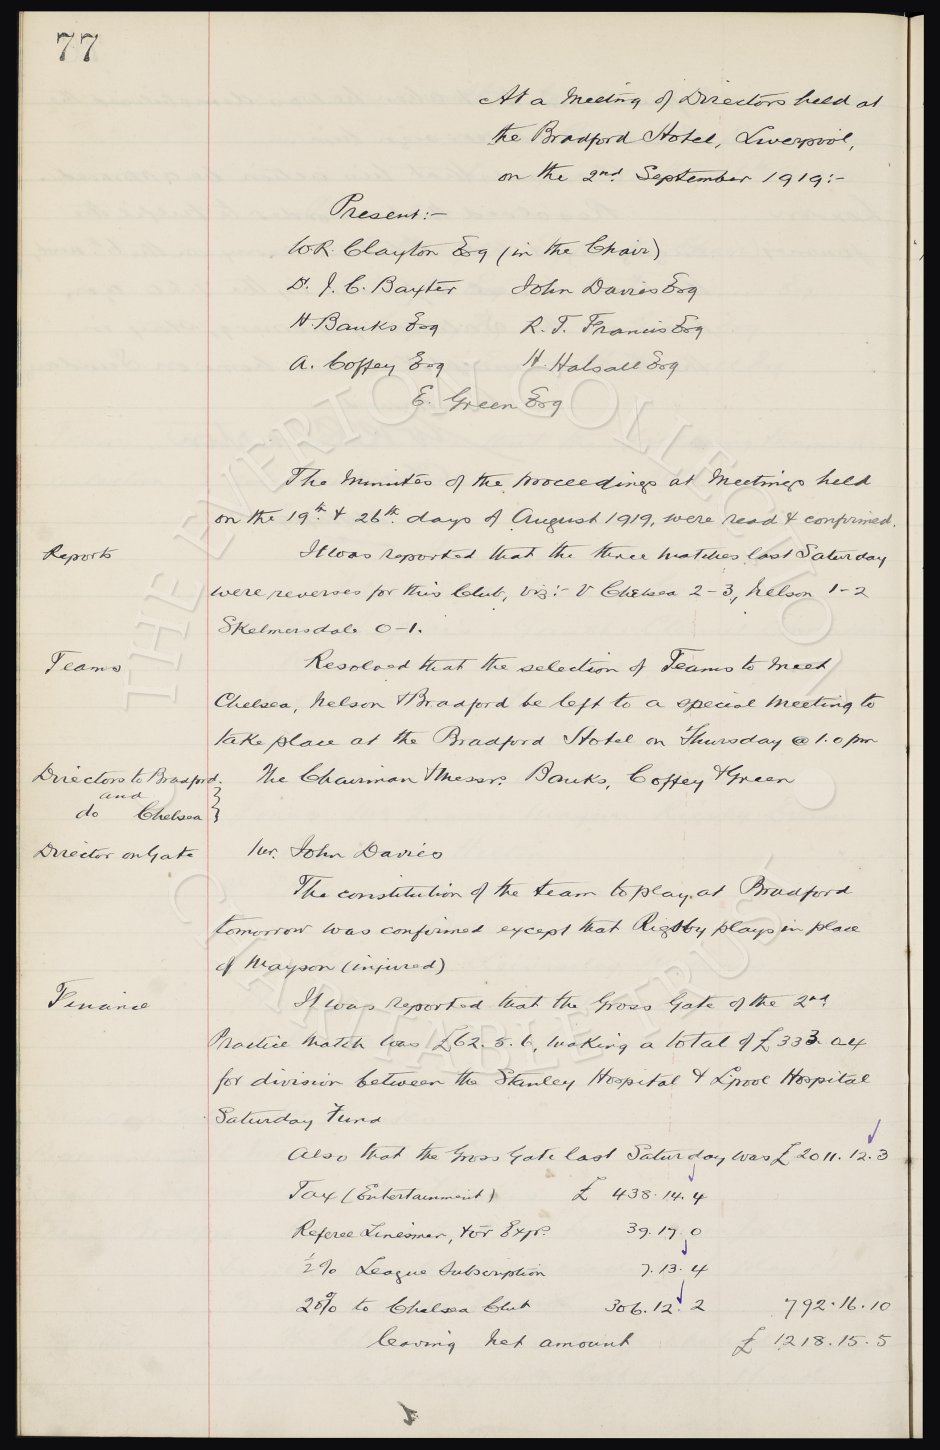 77
At a Meeting of Directors held at
the Bradford Hotel, Liverpool,
on the 2nd September 1919:-
Present:-
W.R. Clayton Esq (in the Chair)
Dr. J. C. Baxter John Davies Esq
H. Banks Esq R. T. Francis Esq
A. Coffey Esq H. Halsall Esq
E. Green Esq
The Minutes of the proceedings at Meetings held
on the 19th & 26th days of August 1919, were read & confirmed.
Reports It was reported that the three matches last Saturday
were reverses for this Club, viz:- v Chelsea 2-3, Nelson 1-2
Skelmersdale 0-1.
Teams Resolved that the selection of Teams to meet
Chelsea, Nelson & Bradford be left to a special meeting to
take place at the Bradford Hotel on Thursday @ 1.0 pm
Directors to Bradford. The Chairman & Messrs. Banks, Coffey & Green
and
do Chelsea
Director on Gate Mr. John Davies
The constitution of the team to play at Bradford
tomorrow was confirmed except that Rigsby plays in place
of Mayson (injured)
Finance It was reported that the Gross Gate of the 2nd
Practice Match was £62.5.6, making a total of £333.0.4
for division between the Stanley Hospital & L'pool Hospital
Saturday Fund
Also that the Gross Gate last Saturday was £2011.12.3
Tax (Entertainment) £ 438.14.4
Referee Linesmen, & or Exps. 39.17.0
½% League Subscription 7.13.4
20% to Chelsea Club 306.12.2 792.16.10
leaving net amount £ 1218.15.5
THE EVERTON COLLECTION
CHARITABLE TRUST